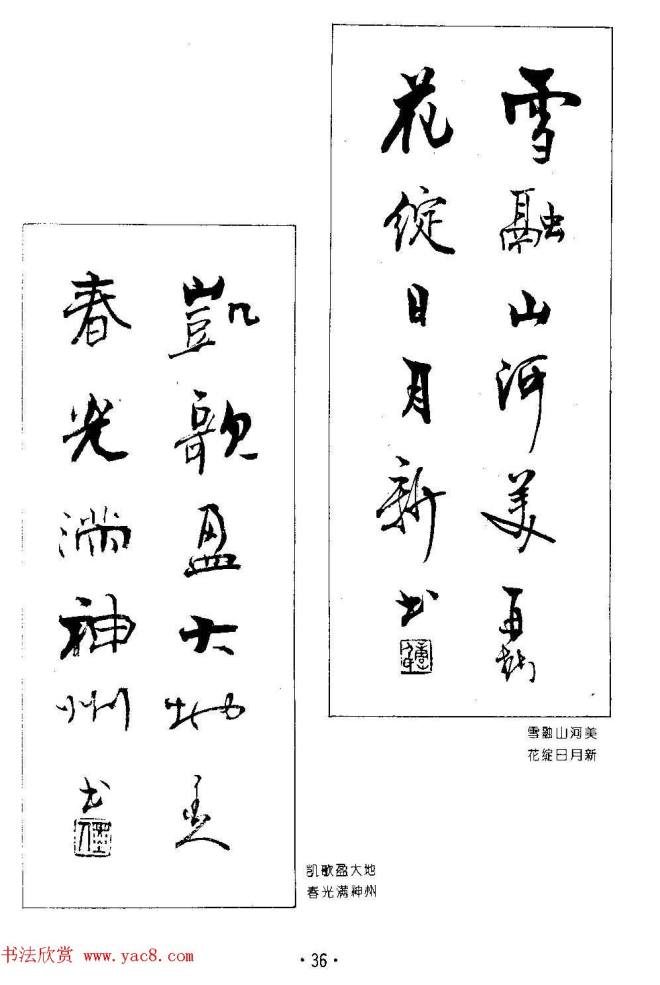 雪融山河美
花綻日月新
书
雪融山河美
花绽日月新
凱歌盈大地
春光滿神州
书
凯歌盈大地
春光满神州
·36·
书法欣赏 www.yac8.com